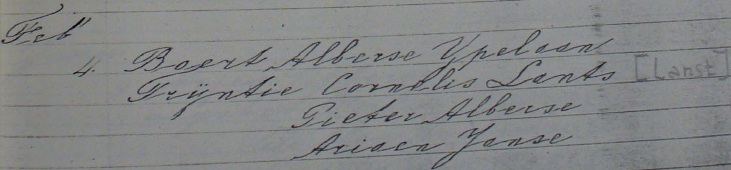 Feb
4. Boert Alberse Ypelaan
Tryntie Cornelis Lants [Lanst]
Pieter Alberse
Ariaen Janse